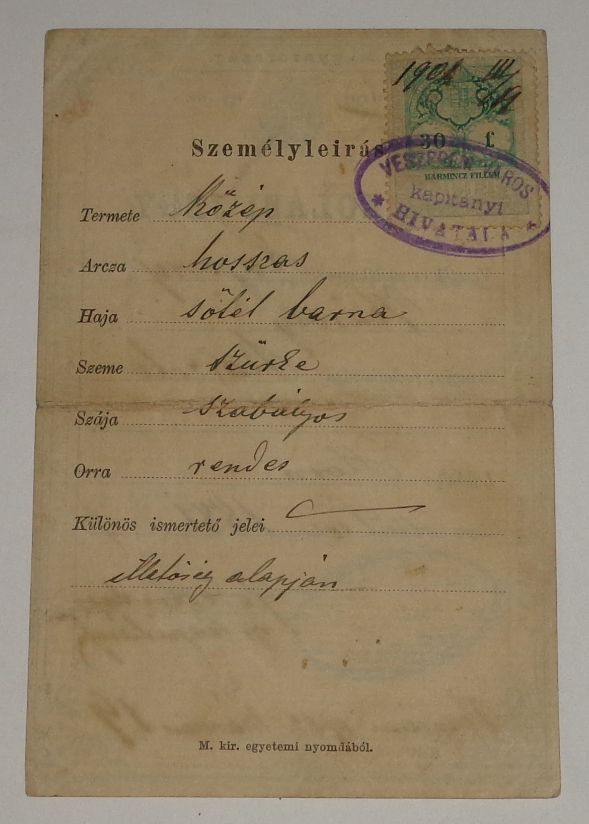 Személyleirás
30 f.
HARMINCZ FILLÉR
VESZPRÉM VÁROS
kapitányi
* HIVATALA *
Termete Közép
Arcza hosszas
Haja sötét barna
Szeme szürke
Szája szabályos
Orra rendes
Különös ismertető jelei
illetőség alapján
M. kir. egyetemi nyomdából.